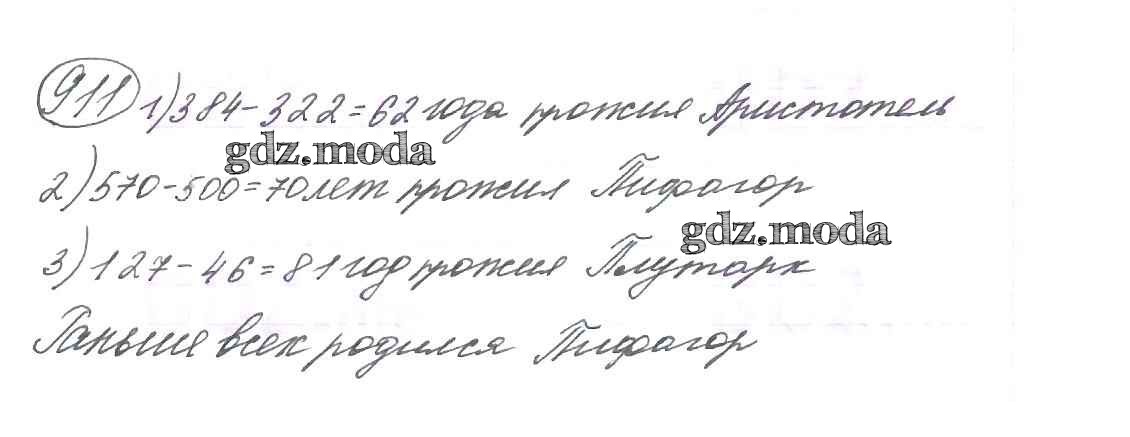 911 1) 384-322=62 года прожил Аристотель
gdz.moda
2) 570-500=70 лет прожил Пифагор
gdz.moda
3) 127-46=81 год прожил Плутарк
Раньше всех родился Пифагор